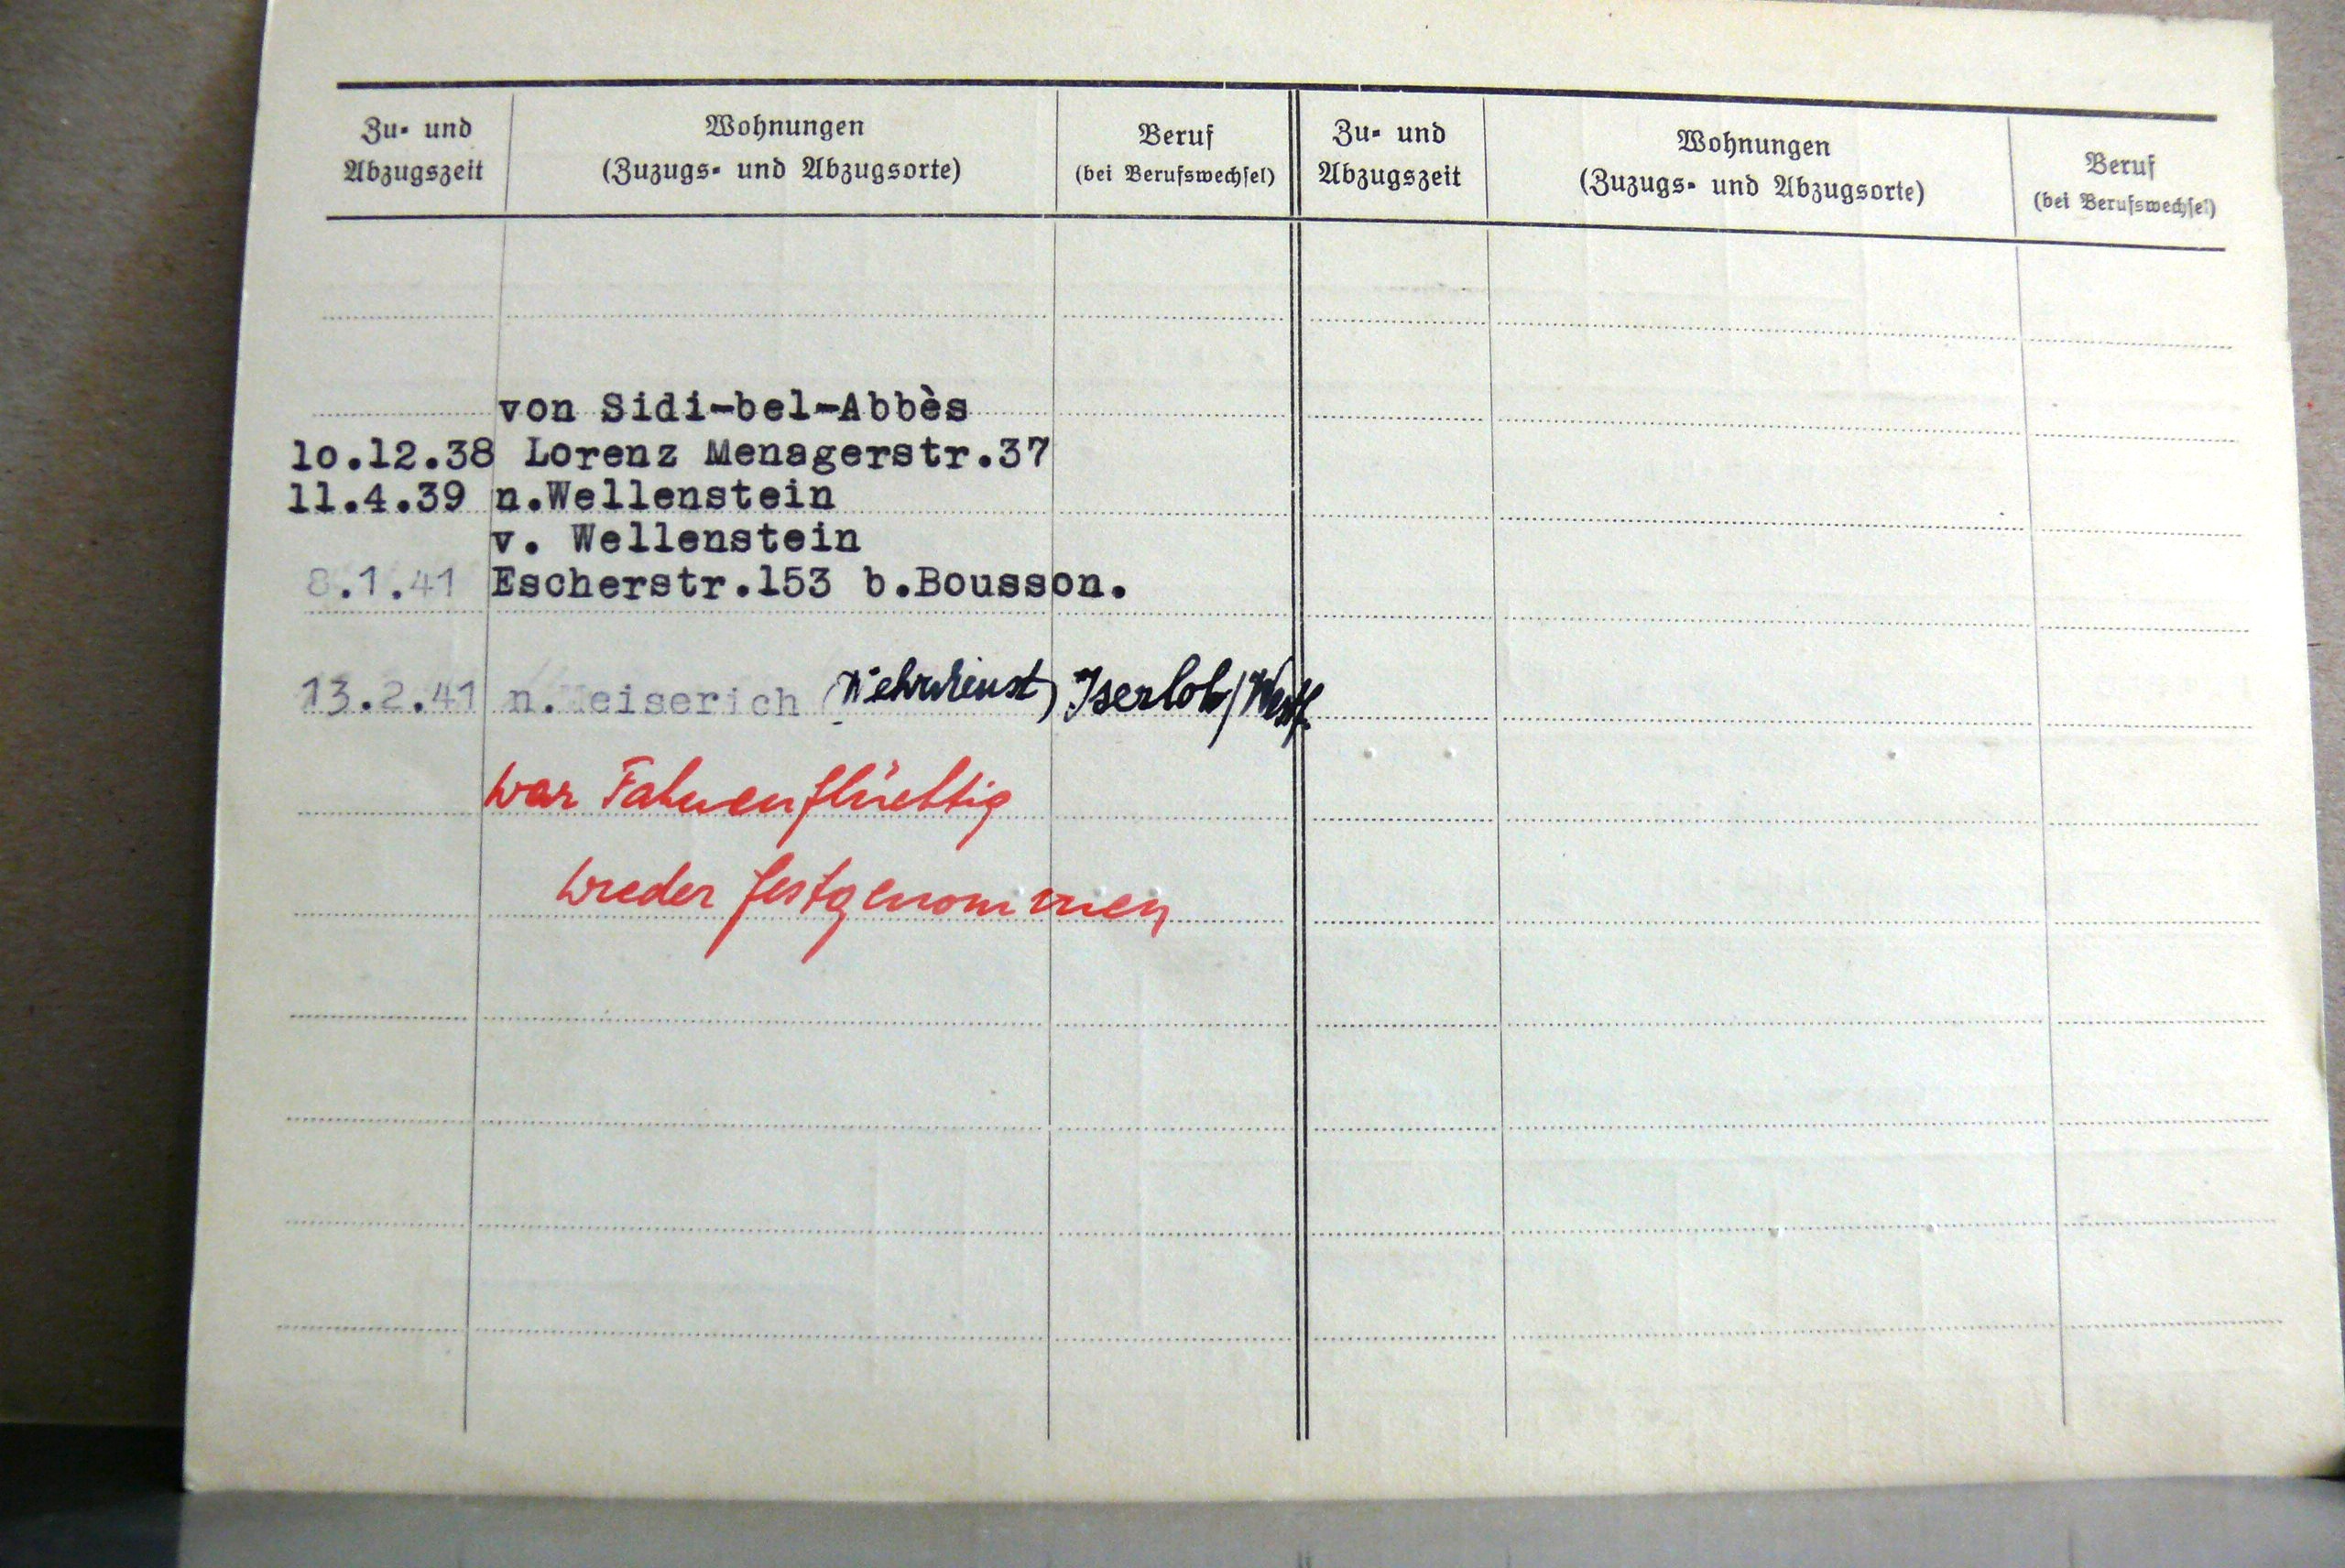 Zu- und Abzugszeit
Wohnungen
(Zuzugs- und Abzugsorte)
Beruf
(bei Berufswechsel)
Zu- und Abzugszeit
Wohnungen
(Zuzugs- und Abzugsorte)
Beruf
(bei Berufswechsel)
von Sidi-bel-Abbès
lo.12.38 Lorenz Menagerstr.37
11.4.39 n.Wellenstein
v. Wellenstein
8.1.41 Escherstr.153 b.Bousson.
13.2.41 n. (Wehrdienst) Iserloh/Westf.
war Fahnenflüchtig
wieder festgenommen